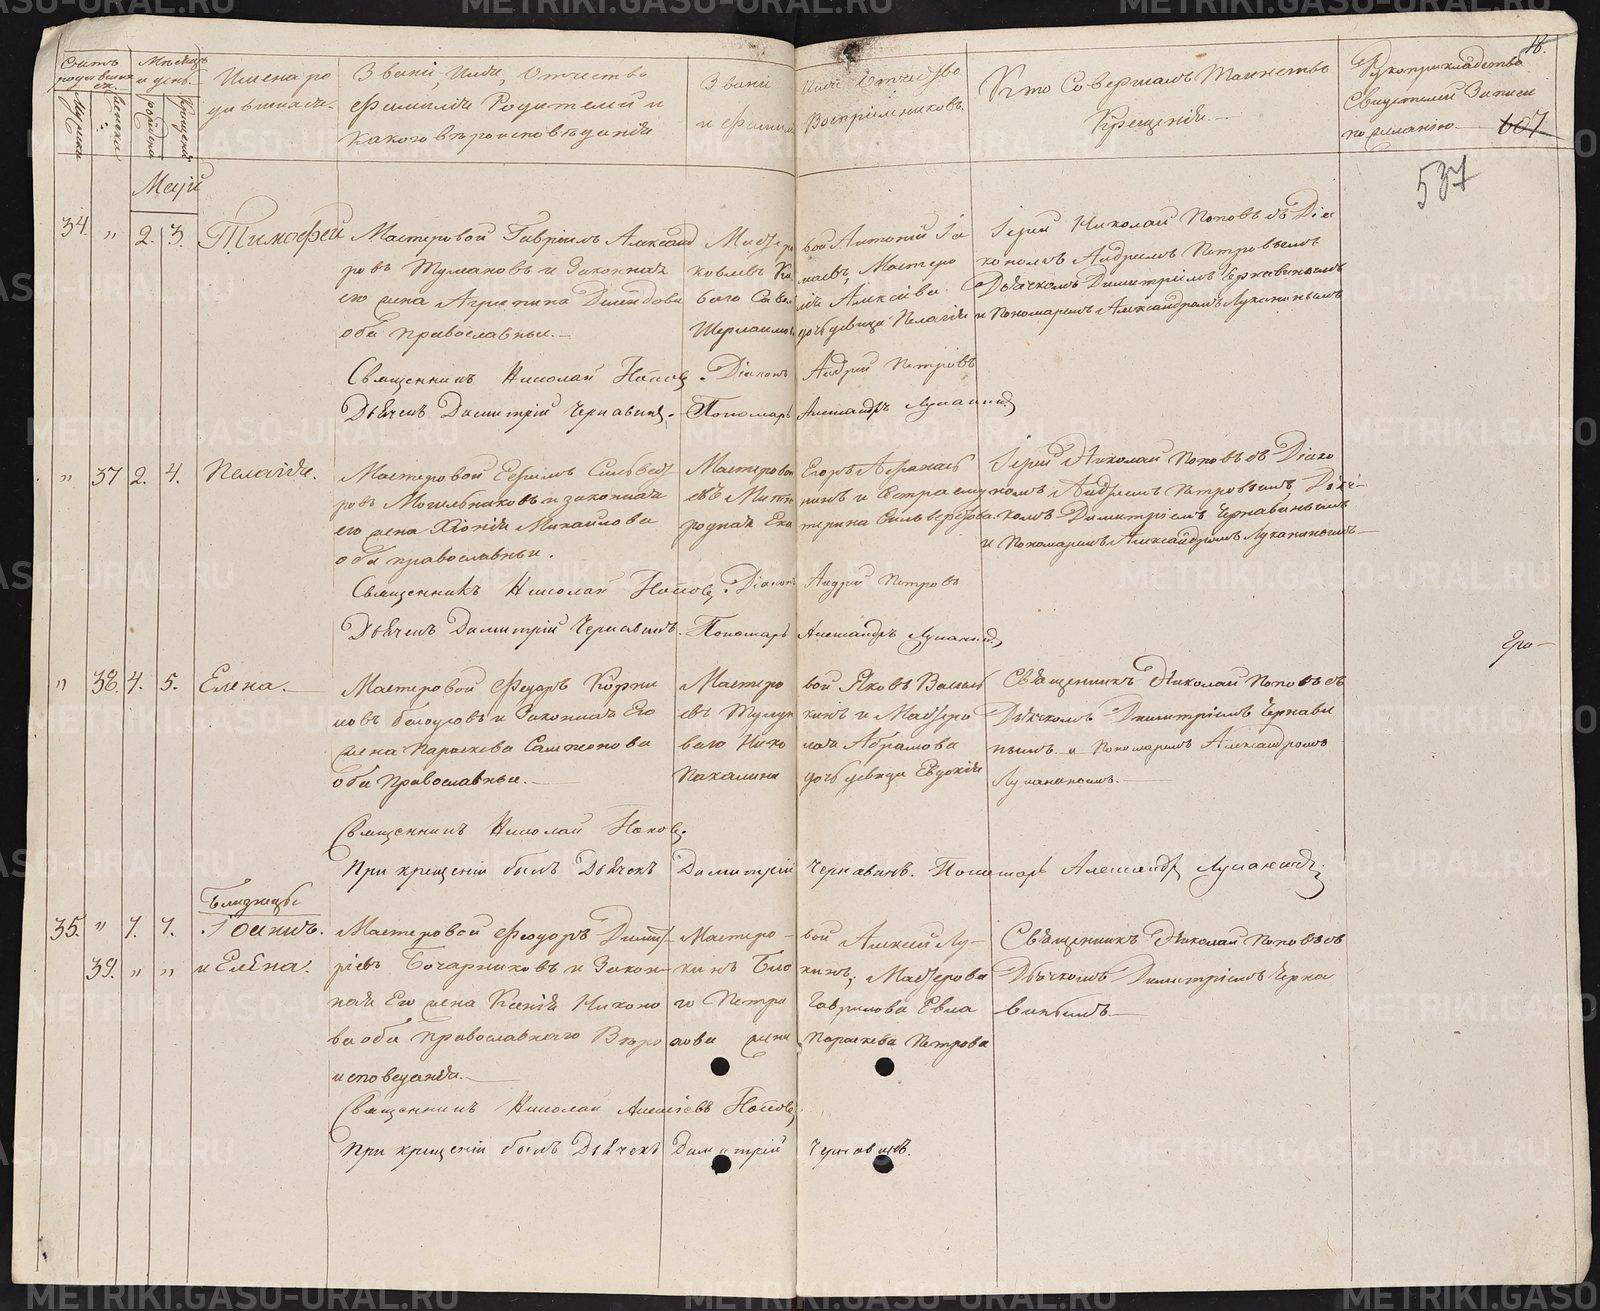 Счетъ родившихся
Мѣсяцъ и день
Имена родившихся.
Званіе, Имя, Отчество
Фамилія Родителей и
Какого вѣроисповѣданія
Званіе Имя Отчество
и Фамилія Воспріемниковъ
Кто Совершалъ Таинство
Крещенія.
Рукоприкладство
Свидетелей Записи
по желанію
18.
607
537
Мужска
Женска
рожденія
крещенія
Маія
34. " 2. 3. Тимофей
Мастеровой Гавріилъ Александ
ровъ Тумановъ и Законная
его жена Агрипина Давидова
оба православные.
вой Антоній
Мастеро
дочь девица Пелагія
Іерей Николай Поповъ съ Діа
кономъ Андреемъ Петровымъ
Дьячкомъ Димитріемъ Чернавинымъ
и Пономаремъ Александромъ Луканинымъ
Священникъ Николай Поповъ. Діаконъ Андрей Петровъ
Дьячекъ Димитрій Чернавинъ. Пономарь Александръ Луканинъ
" 37 2. 4. Пелагія.
Мастеровой Ефимъ Сильвест
ровъ Могильниковъ и законная
его жена Хіонія Михайлова
оба православные.
Мастеровой Егоръ Афанась
евъ
родная Екатерина Сильверстова
Іерей Николай Поповъ съ Діако
номъ Андреемъ Петровымъ, Дья
чкомъ Димитріемъ Чернавинымъ
и Пономаремъ Александромъ Луканинымъ
Священникъ Николай Поповъ. Діаконъ Андрей Петровъ
Дьячекъ Димитрій Чернавинъ. Пономарь Александръ Луканинъ
" 38. 4. 5. Елена.
Мастеровой Федоръ Корни
ловъ Белоусовъ и Законная Его
жена Параскева Самсонова
оба Православные.
Мастеровой Яковъ Василь
евъ и Мастеро
ваго Николая Абрамова
Пакалина дочь девица Евдокія
Священникъ Николай Поповъ съ
Дьячкомъ Димитріемъ Чернави
нымъ и Пономаремъ Александромъ
Луканинымъ.
Священникъ Николай Поповъ.
При крещеніи былъ Дьячекъ Димитрій Чернавинъ. Пономарь Александръ Луканинъ.
Близнецы
35. " 7. 7. Іоаннъ.
39. " " и Елена.
Мастеровой Феодоръ Димит
ріевъ Бочарниковъ и Закон
ная Его жена Ксенія Никоно
ва оба Православнаго Вѣро
исповеданія.
Мастеровой Алексей Лу
кинъ
го Петра Гаврилова
жена Параскева Петрова
Священникъ Николай Поповъ съ
Дьячкомъ Димитріемъ Черна
винымъ.
Священникъ Николай Алексіевъ Поповъ
При крещеніи былъ Дьячекъ Димитрій Чернавинъ.
METRIKI.GASO-URAL.RU